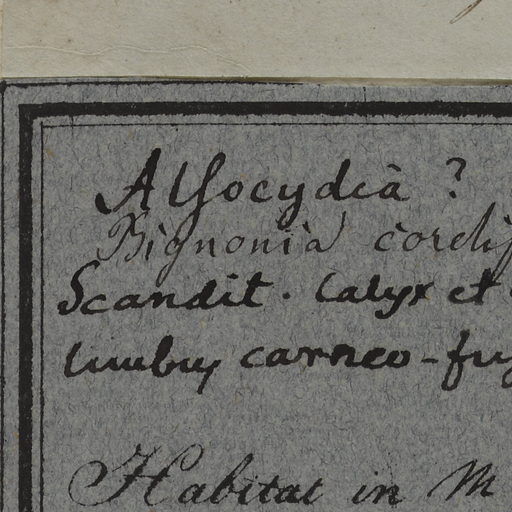 Alsocydia ?
Bignonia cordif
Scandit. Calyx et
limbus carneo-fu
Habitat in M